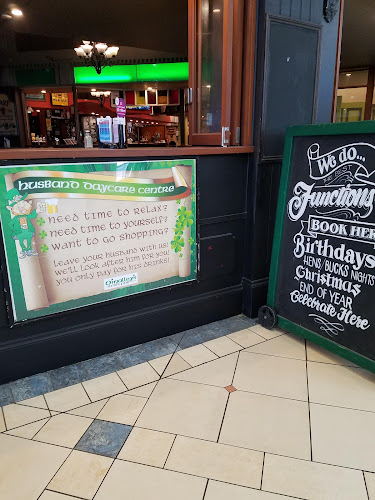 Husband Daycare Centre
Need time to relax?
Need time to yourself?
Want to go shopping?
Leave your husband with us!
We'll look after him for you
You only pay for his drinks!
We do...
Functions
BOOK HERE
Birthdays
HENS/BUCKS NIGHTS
Christmas
END OF YEAR
Celebrate Here